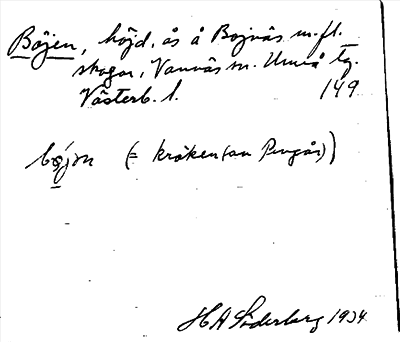 Böjen, höjd, ås å Bojnäs m.fl.
skogar, Vännäs sn. Umeå tg.
Västerb. l. 149
böjən (= kröken (an Pengån))
HA Söderberg 1934